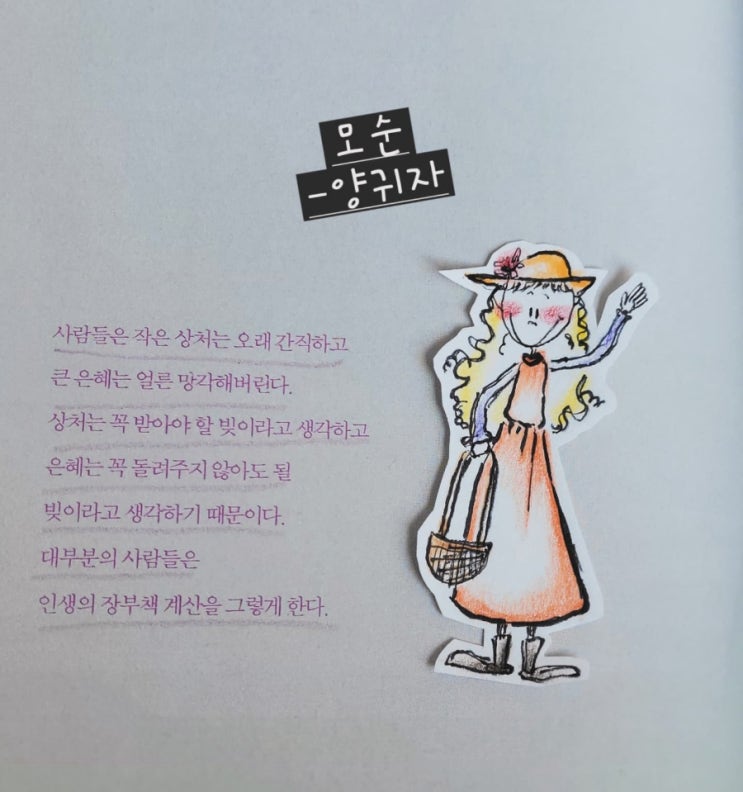 모순
-양귀자
사람들은 작은 상처는 오래 간직하고
큰 은혜는 얼른 망각해버린다.
상처는 꼭 받아야 할 빚이라고 생각하고
은혜는 꼭 돌려주지 않아도 될
빚이라고 생각하기 때문이다.
대부분의 사람들은
인생의 장부책 계산을 그렇게 한다.